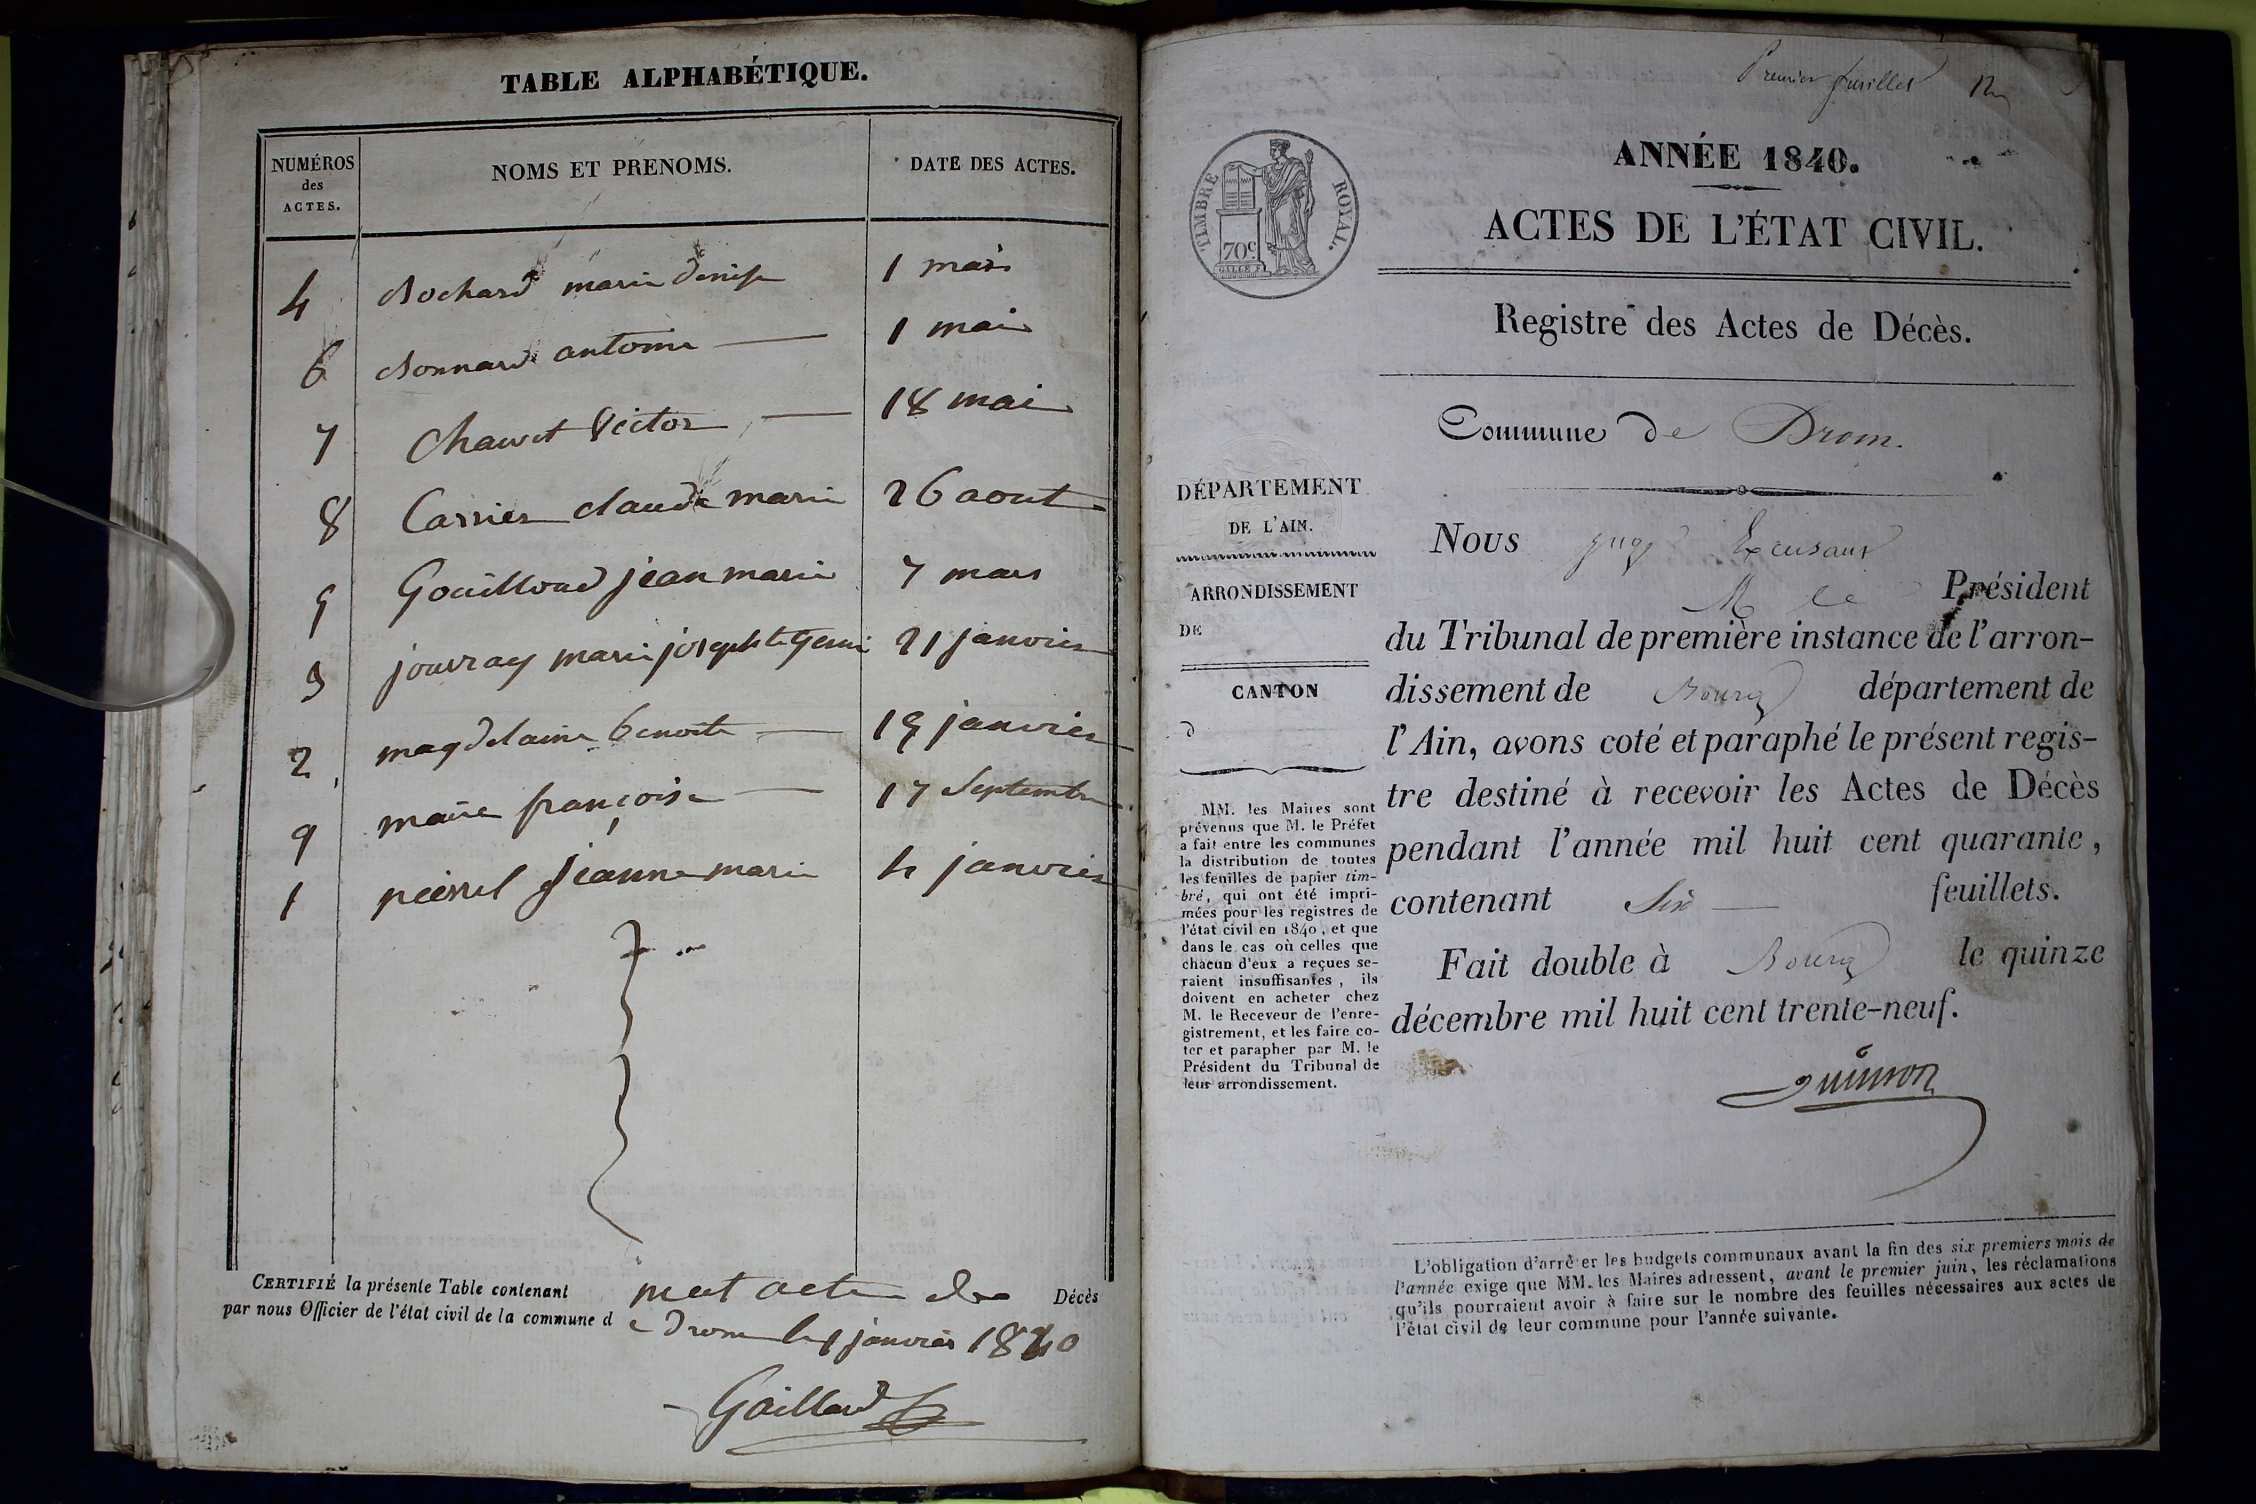 TABLE ALPHABÉTIQUE.
NUMÉROS
des
ACTES.
NOMS ET PRENOMS.
DATE DES ACTES.
4 Bochard marie denise 1 mars
6 Bonnard antoine 1 mai
7 Chauvet Victor 18 mai
8 Carrier claude marie 26 aout
5 Gouilloud jean marie 7 mars
3 jouvray marie josephte 21 janvier
2 magdelaine benoite 19 janvier
9 maire françoise 17 Septembre
1 jeanne marie 4 janvier
CERTIFIÉ la présente Table contenant neuf actes de Décès
par nous Officier de l'état civil de la commune d e drom le 1 janvier 1840
Gaillard
Premier feuillet
TIMBRE ROYAL.
70c
ANNÉE 1840.
ACTES DE L'ÉTAT CIVIL.
Registre des Actes de Décès.
Commune de Drom.
DÉPARTEMENT
DE L'AIN.
ARRONDISSEMENT
DE
CANTON
d
MM. les Maires sont
prévenus que M. le Préfet
a fait entre les communes
la distribution de toutes
les feuilles de papier tim-
bré, qui ont été impri-
mées pour les registres de
l'état civil en 1840, et que
dans le cas où celles que
chacun d'eux a reçues se-
raient insuffisantes, ils
doivent en acheter chez
M. le Receveur de l'enre-
gistrement, et les faire co-
ter et parapher par M. le
Président du Tribunal de
leur arrondissement.
Nous juge
M le Président
du Tribunal de première instance de l'arron-
dissement de Bourg département de
l'Ain, avons coté et paraphé le présent regis-
tre destiné à recevoir les Actes de Décès
pendant l'année mil huit cent quarante,
contenant Six feuillets.
Fait double à Bourg le quinze
décembre mil huit cent trente-neuf.
L'obligation d'arrêter les budgets communaux avant la fin des six premiers mois de
l'année exige que MM. les Maires adressent, avant le premier juin, les réclamations
qu'ils pourraient avoir à faire sur le nombre des feuilles nécessaires aux actes de
l'état civil de leur commune pour l'année suivante.